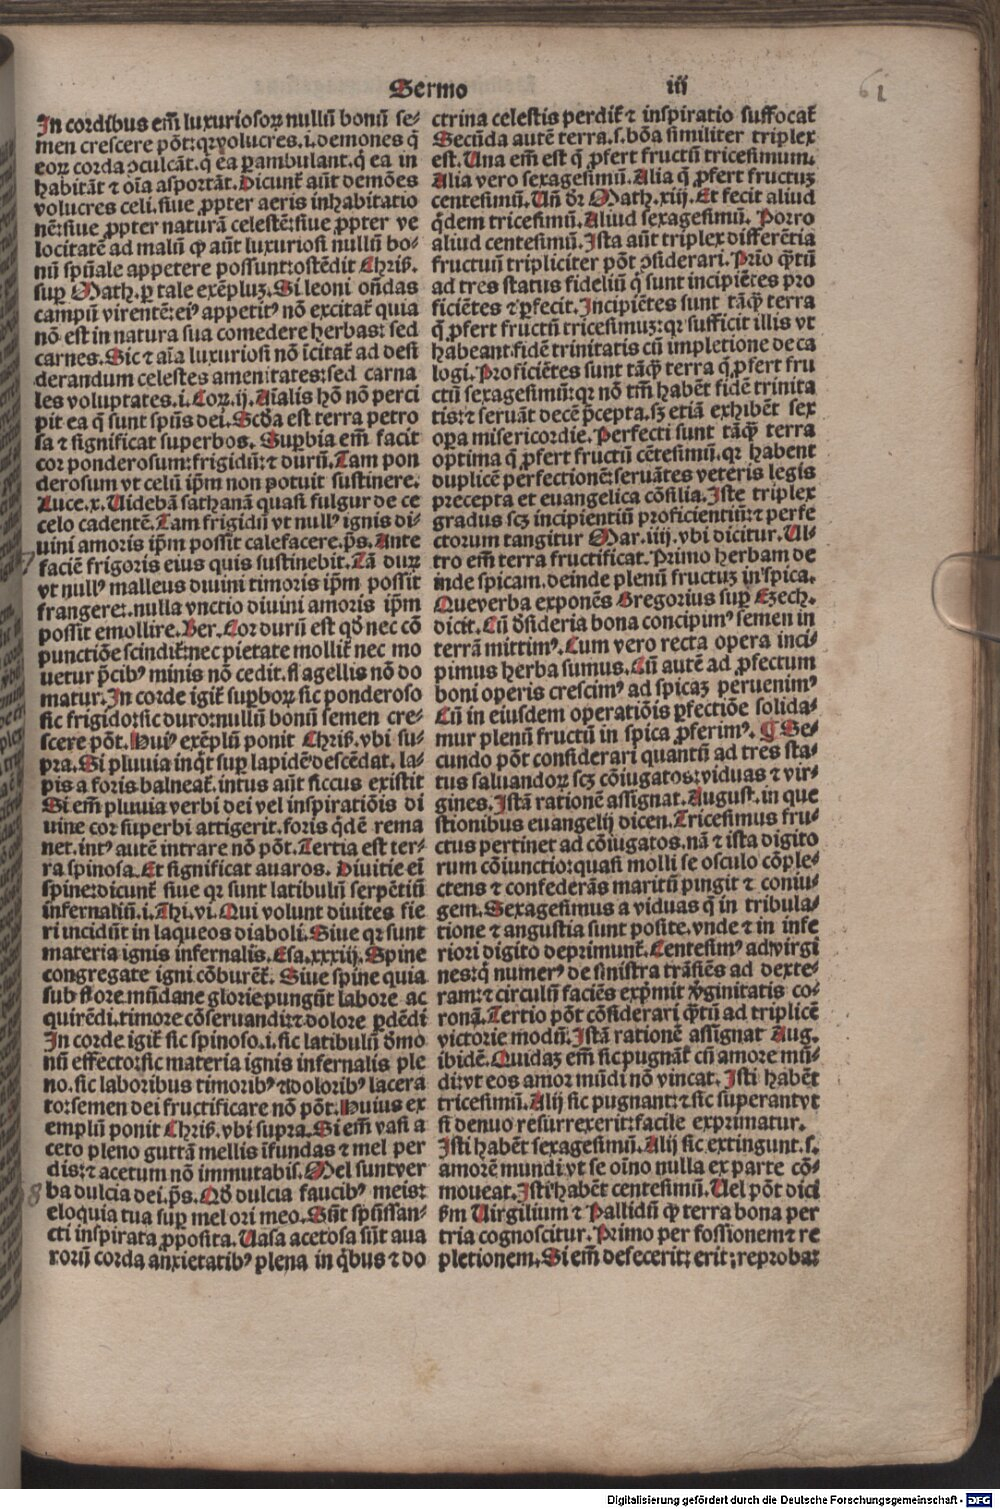 Sermo iij
61
In cordibus em̄ luxuriosoꝝ nullū bonū se-
men crescere pōt: qꝛ volucres .i. demones q̄
eoꝝ corda ↄculcāt. q̄ ea ꝑambulant. q̄ ea in
habitāt ⁊ oīa asportāt. Dicunt̄ aūt demōes
volucres celi. siue ꝓpter aeris inhabitatio
nē: siue ꝓpter naturā celestē: siue ꝓpter ve
locitatē ad malū ꝙ aūt luxuriosi nullū bo-
nū spūale appetere possunt: ostēdit Chris.
suꝑ Math. ꝑ tale exēpluꝫ. Si leoni ondas
campū virentē: eiꝰ appetitꝰ nō excitat̄ quia
nō est in natura sua comedere herbas: sed
carnes. Sic ⁊ aīa luxuriosi nō īcitat̄ ad desi
derandum celestes amenitates: sed carna
les voluptates. i. Coꝝ. ij. Aīalis hō nō perci
pit ea q̄ sunt spūs dei. Scd̄a est terra petro
sa ⁊ significat superbos. Suꝑbia em̄ facit
cor ponderosum: frigidū: ⁊ durū. Tam pon
derosum vt celū ip̄m non potuit sustinere.
Luce. x. Uidebā sathanā quasi fulgur de ce
celo cadentē. Tam frigidū vt nullꝰ ignis di-
uini amoris ip̄m possit calefacere. p̄s. Ante
faciē frigoris eius quis sustinebit. Tā duꝝ
vt nullꝰ malleus diuini timoris ip̄m possit
frangere: nulla vnctio diuini amoris ip̄m
possit emollire. Ber. Cor durū est qd̄ nec cō
punctiōe scindit̄: nec pietate mollit̄ nec mo
uetur p̄cibꝰ minis nō cedit. flagellis nō do
matur. In corde igit̄ suꝑboꝝ sic ponderoso
sic frigido: sic duro: nullū bonū semen cre-
scere pōt. Huiꝰ exēplū ponit Chris. vbi su-
pra. Si pluuia inq̄t suꝑ lapidē descēdat. la-
pis a foris balneat̄. intus aūt siccus existit
Si em̄ pluuia verbi dei vel inspiratiōis di
uine cor superbi attigerit. foris q̄dē rema
net. intꝰ autē intrare nō pōt. Tertia est ter-
ra spinosa. Et significat auaros. Diuitie ei
spine: dicunt̄ siue qꝛ sunt latibulū serpētiū
infernaliū. i. Thi. vi. Qui volunt diuites fie
ri incidūt in laqueos diaboli. Siue qꝛ sunt
materia ignis infernalis. Esa. xxxiij. Spine
congregate igni cōburēt̄. Siue spine quia
sub flore mūdane glorie pungūt labore ac
quirēdi. timore cōseruandi: ⁊ dolore ꝑdēdi
In corde igit̄ sic spinoso .i. sic latibulū dēmo
nū effecto: sic materia ignis infernalis ple
no. sic laboribus timoribꝰ ⁊ doloribꝰ lacera
to: semen dei fructificare nō pōt. Huius ex
emplū ponit Chris. vbi supra. Si em̄ vasi a
ceto pleno guttā mellis īfundas ⁊ mel per
dis: ⁊ acetum nō immutabis. Mel sunt ver
ba dulcia dei. p̄s. Qd̄ dulcia faucibꝰ meis:
eloquia tua suꝑ mel ori meo. Sūt spūssan-
cti inspirata ꝓposita. Uasa acetosa sūt aua
rorū corda anxietatibꝰ plena in q̄bus ⁊ do
ctrina celestis perdit̄ ⁊ inspiratio suffocat̄
Secūda autē terra .s. bōa similiter triplex
est. Una em̄ est q̄ ꝓfert fructū tricesimum.
Alia vero sexagesimū. Alia q̄ ꝓfert fructuꝫ
centesimū. Uñ dr̄ Math. xiij. Et fecit aliud
q̄dem tricesimū. Aliud sexagesimū. Porro
aliud centesimū. Ista aūt triplex differētia
fructuū tripliciter pōt ↄsiderari. Prīo q̄ꝫtū
ad tres status fideliū q̄ sunt incipiētes pro
ficiētes ⁊ ꝑfecit. Incipiētes sunt tāꝙ̄ terra
q̄ ꝓfert fructū tricesimuꝫ: qꝛ sufficit illis vt
habeant fidē trinitatis cū impletione deca
logi. Proficiētes sunt tāꝙ̄ terra q̄ ꝓfert fru
ctū sexagesimū: qꝛ nō tm̄ habēt fidē trinita
tis: ⁊ seruāt decē p̄cepta. sꝫ etiā exhibēt sex
oꝑa misericordie. Perfecti sunt tāꝙ̄ terra
optima q̄ ꝓfert fructū cētesimū. qꝛ habent
duplicē perfectionē: seruātes veteris legis
precepta et euangelica cōsilia. Iste triplex
gradus scꝫ incipientiū proficientiū: ⁊ perfe
ctorum tangitur Mar. iiij. vbi dicitur. Ul-
tro em̄ terra fructificat. Primo herbam de
inde spicam. deinde plenū fructuꝫ in spica.
Que verba exponēs Gregorius suꝑ Ezech.
dicit. Cū d̄sideria bona concipimꝰ semen in
terrā mittimꝰ. Cum vero recta opera inci-
pimus herba sumus. Cū autē ad ꝓfectum
boni operis crescimꝰ ad spicaꝫ peruenimꝰ
Cū in eiusdem operatiōis ꝑfectiōe solida-
mur plenū fructū in spica ꝓferimꝰ. ¶ Se-
cundo pōt considerari quantū ad tres sta-
tus saluandoꝝ scꝫ cōiugatos: viduas ⁊ vir-
gines. Istā rationē assignat. August. in que
stionibus euangelij dicen. Tricesimus fru-
ctus pertinet ad cōiugatos. nā ⁊ ista digito
rum cōiunctio: quasi molli se osculo cōple-
ctens ⁊ confederās maritū pingit ⁊ coniu-
gem. Sexagesimus a viduas q̄ in tribula-
tione ⁊ angustia sunt posite. vnde ⁊ in infe
riori digito deprimunt̄. Centesimꝰ ad virgi
nes: q̄ numerꝰ de sinistra trāsiēs ad dexte-
ram: ⁊ circulū faciēs exp̄mit v̄ginitatis co-
ronā. Tertio pōt cōsiderari q̄ꝫtū ad triplicē
victorie modū. Istā rationē assignat Aug.
ibidē. Quidaꝫ em̄ sic pugnāt̄ cū amore mū-
di: vt eos amor mūdi nō vincat. Isti habēt
tricesimū. Alij sic pugnant: ⁊ sic superant vt
si denuo resurrexerit: facile exprimatur.
Isti habēt sexagesimū. Alij sic extingunt .s.
amorē mundi vt se oīno nulla ex parte cō-
moueat. Isti habēt centesimū. Uel pōt dici
s̄m Uirgilium ⁊ Pallidū ꝙ terra bona per
tria cognoscitur. Primo per fossionem ⁊ re
pletionem. Si em̄ defecerit: erit: reproba:
Digitalisierung gefördert durch die Deutsche Forschungsgemeinschaft - DFG